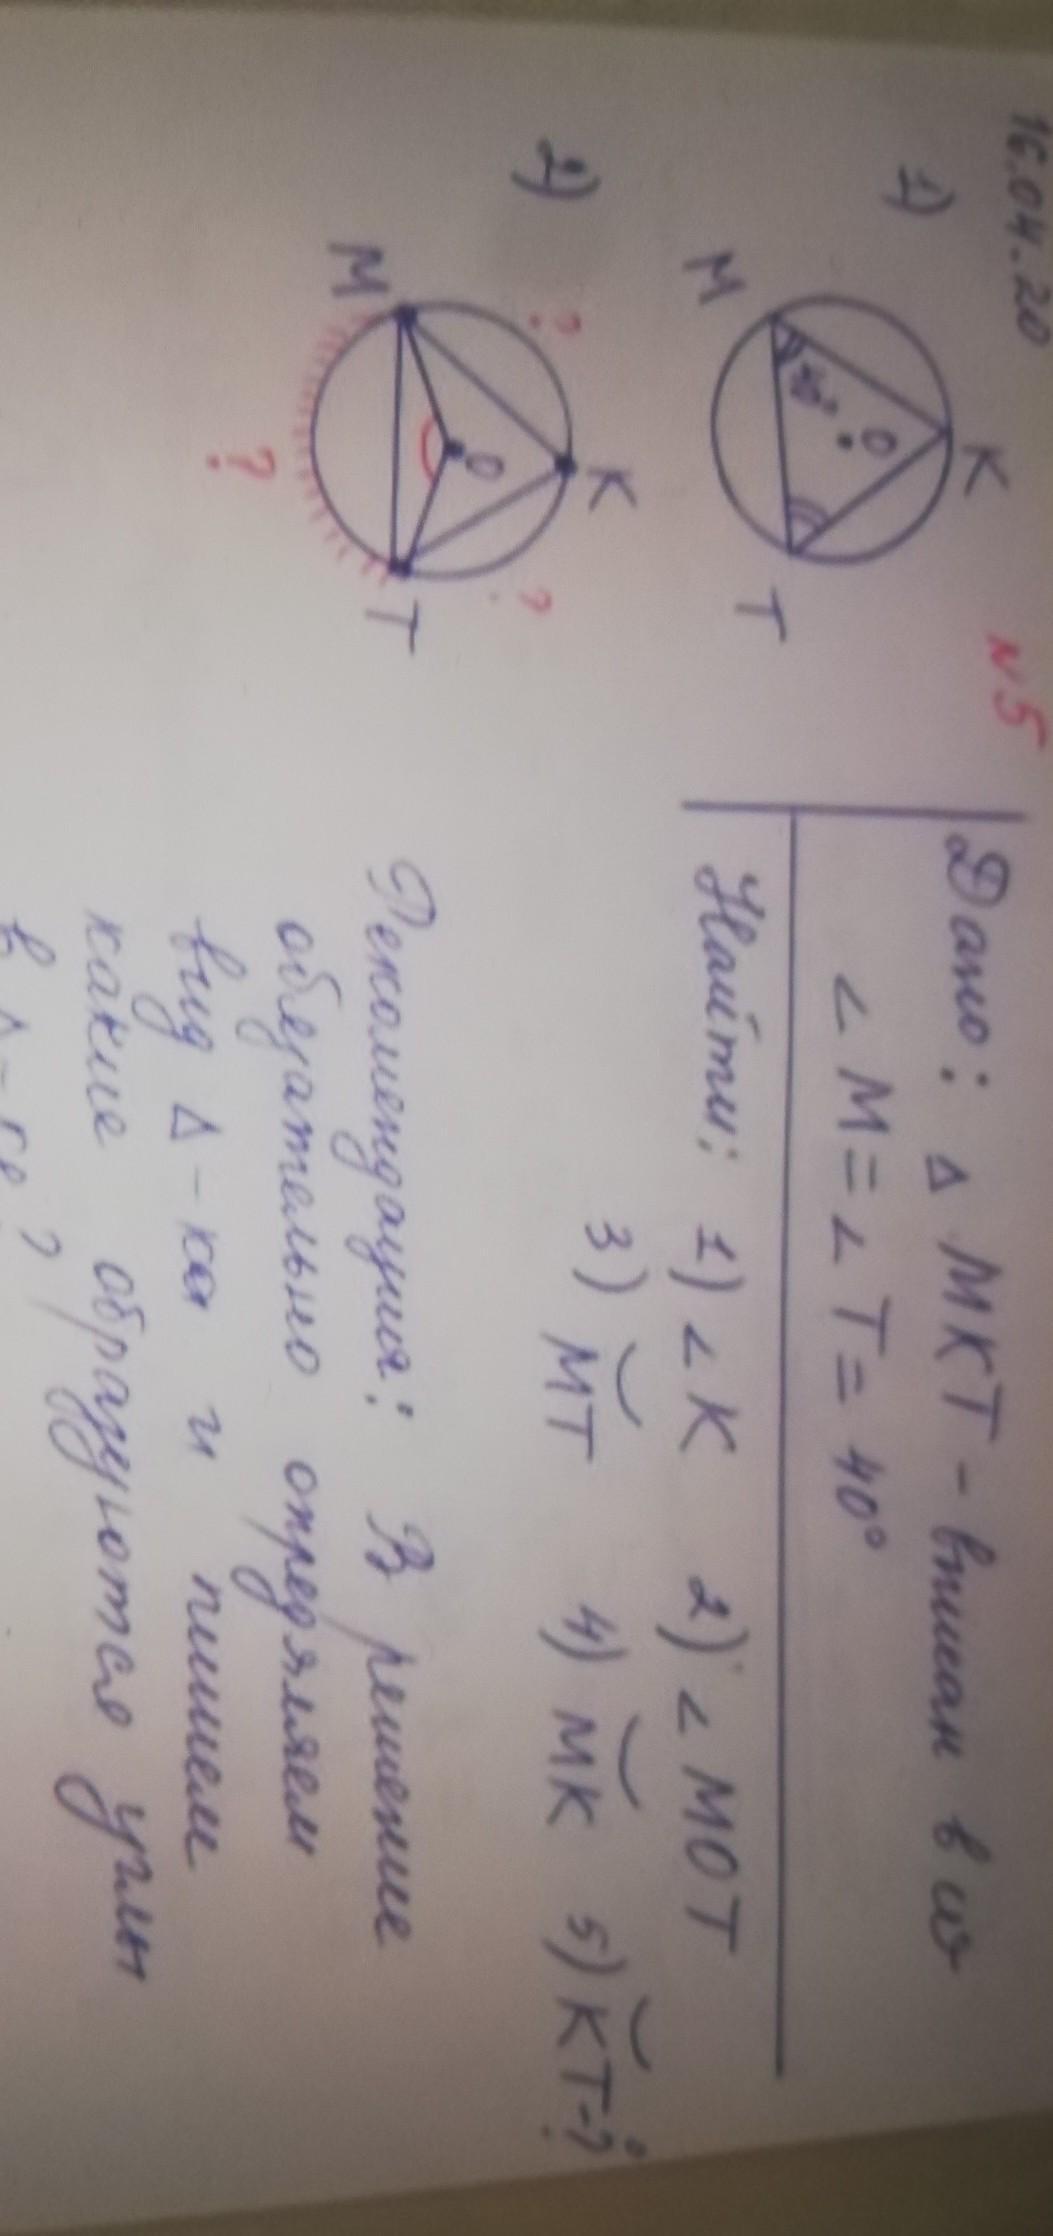 16.04.20
№5
1)
M
40°
O
K
T
Дано: Δ MKT - вписан в
∠ M = ∠ T = 40°
Найти: 1) ∠ K 2) ∠ MOT
3) ◡MT 4) ◡MK 5) ◡KT-?
2)
M
O
K
T
?
?
?
Рекомендация: В решение
обязательно определяем
вид Δ-ка и пишем
какие образуются углы
в Δ-ке?